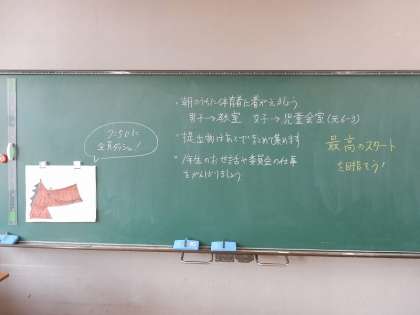 ・朝のうちに体育着に着がえましょう
男子→教室 女子→児童会室(元6-3)
・提出物はあとでまとめて集めます
・1年生のお世話や委員会の仕事
をがんばりましょう
最高のスタート
を目指そう!
全員ダッシュ!